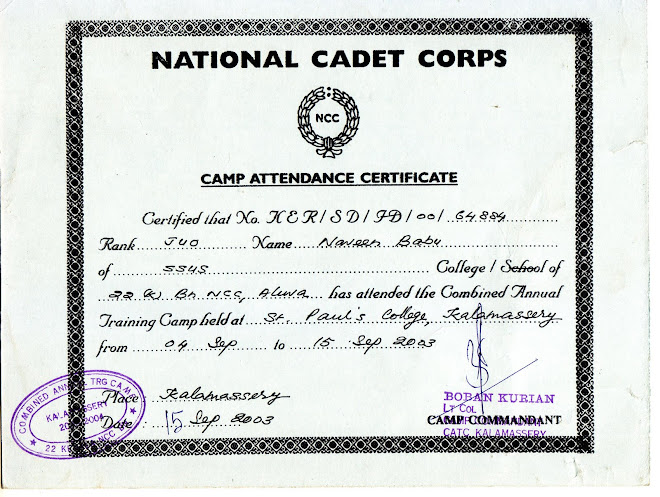 NATIONAL CADET CORPS
NCC
CAMP ATTENDANCE CERTIFICATE
Certified that No. KER/SD/JD/00/64884
Rank JUO Name Naveen Babu
of SSUS College / School of
22 (K) Bn NCC, Aluva has attended the Combined Annual
Training Camp held at St. Paul's College, Kalamassery
from 04 Sep to 15 Sep 2003
Place: Kalamassery
Date: 15 Sep 2003
COMBINED ANNUAL TRG CAMP
KALAMASSERY
22 NCC
BOBAN KURIAN
LT COL
CAMP COMMANDANT
CATC KALAMASSERY